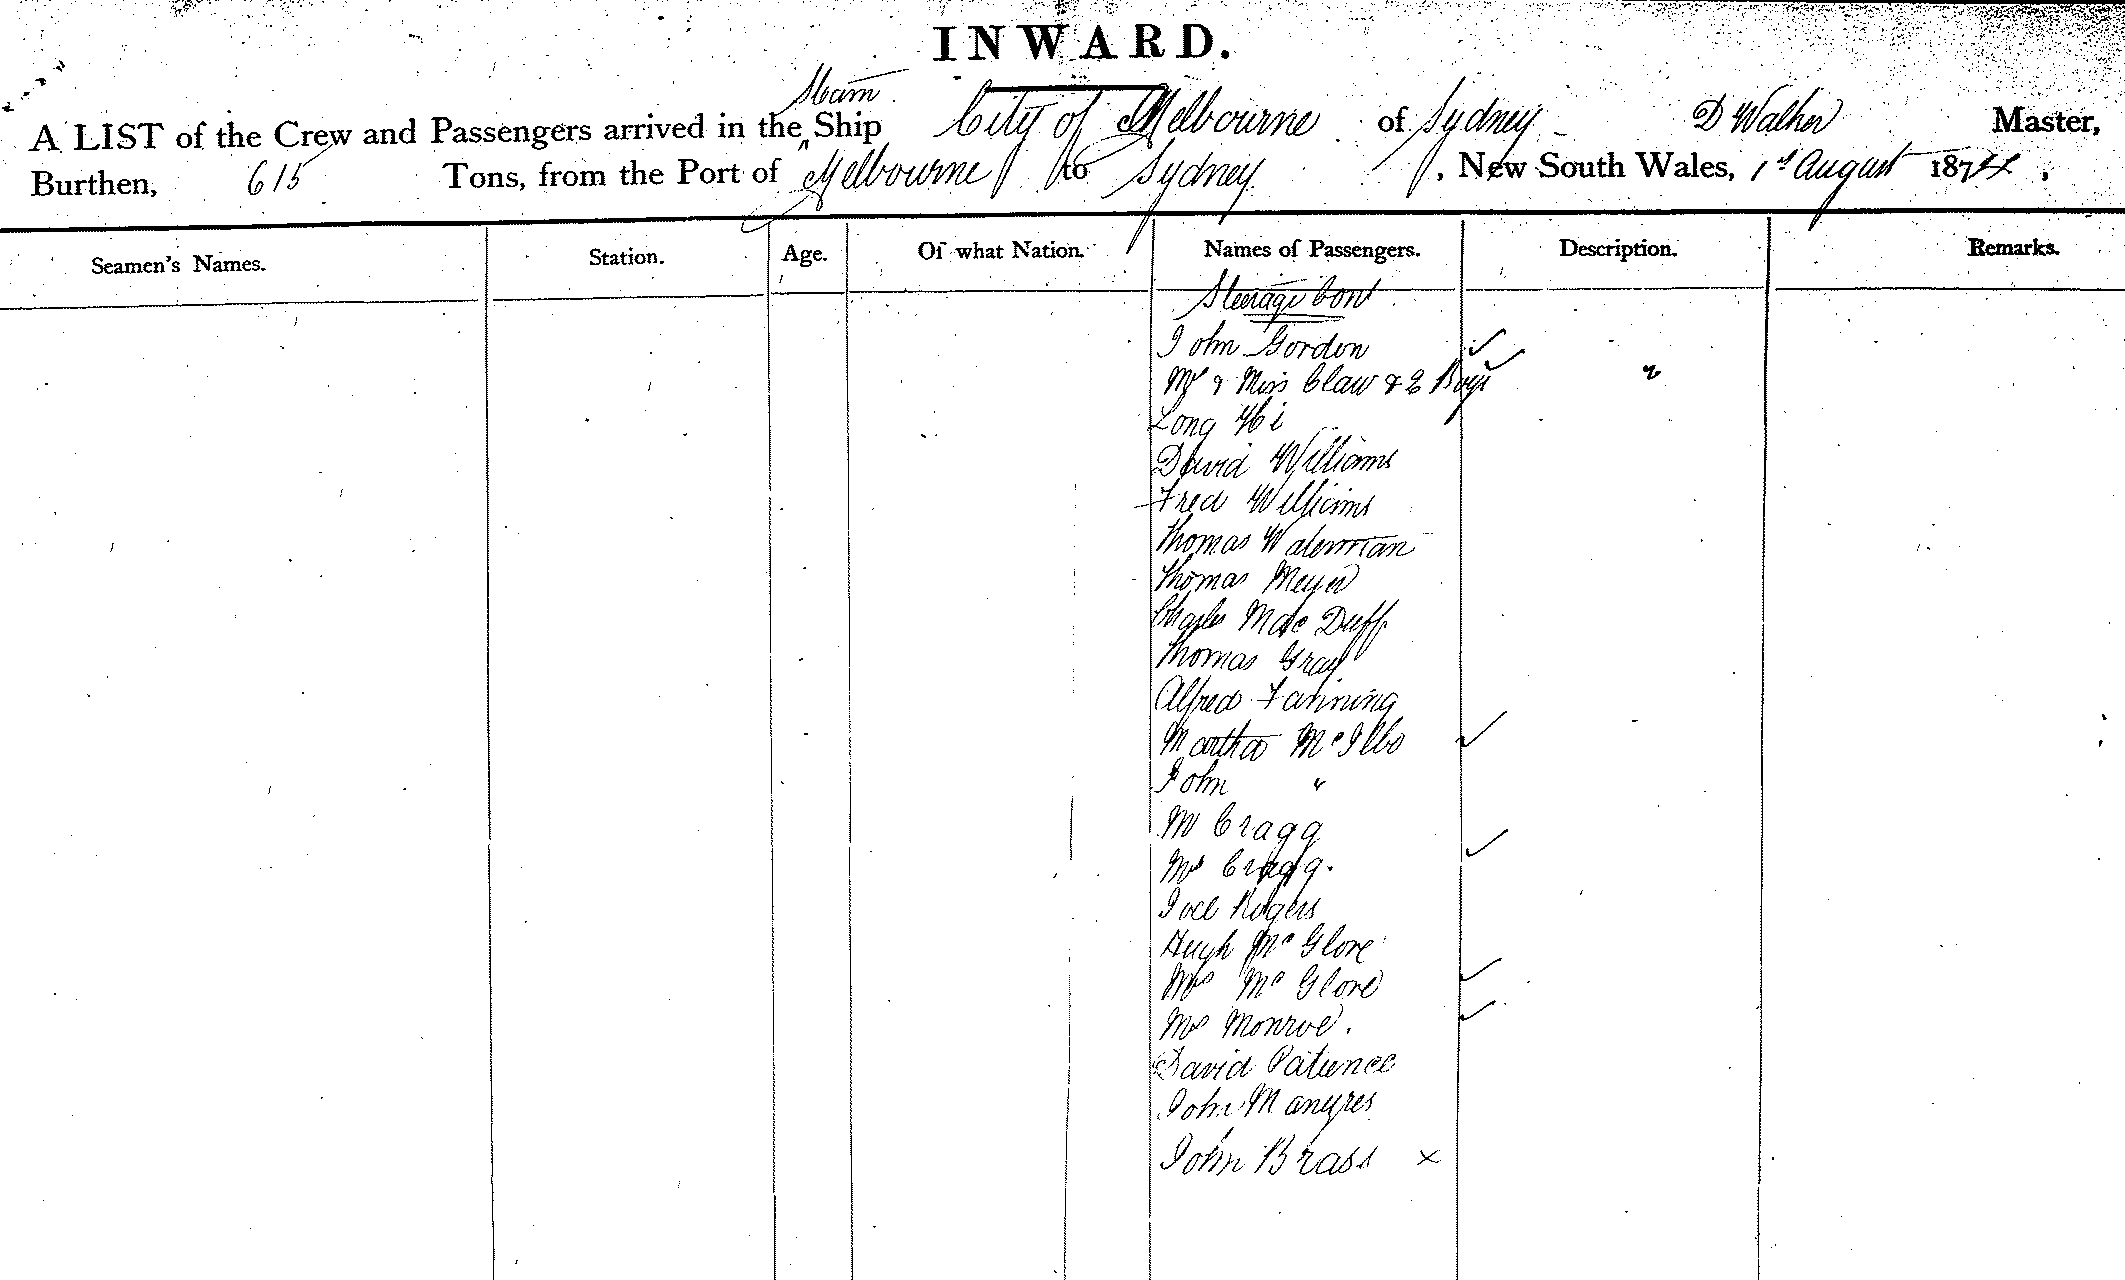 INWARD.
Steam
A LIST of the Crew and Passengers arrived in the Ship City of Melbourne of Sydney D Walker Master,
Burthen, 615 Tons, from the Port of Melbourne to Sydney, New South Wales, 1st August 1874,
Seamen's Names. Station. Age. Of what Nation. Names of Passengers. Description. Remarks.
Steerage Cont
John Gordon ✓
Mr & Miss Claw & 2 Boys ✓ "
Long Hi
David Williams
Fred Williams
Thomas Waterman
Thomas Meyer
Charles Mac Duff
Thomas Gray
Alfred Fanning
Martha McIlbo ✓
John "
Mr Cragg
Mrs Cragg. ✓
Joel Rogers
Hugh Mc Glore
Mrs Mc Glore ✓
Mrs Monroe. ✓
David Patience
John
John Brass x